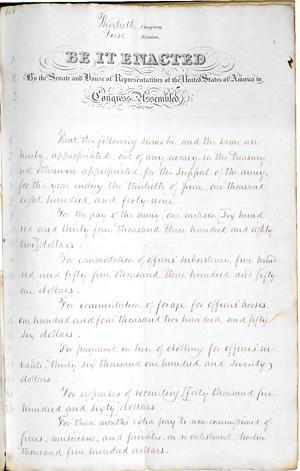 Thirtieth Congress
First Session
BE IT ENACTED
By the Senate and House of Representatives of the United States of America in
Congress Assembled,
That the following sums be, and the same are
hereby, appropriated, out of any money in the treasury
not otherwise appropriated, for the support of the army,
for the year ending the thirtieth of June, one thousand
eight hundred and forty-nine.
For the pay of the army, one million six hund
red and thirty four thousand three hundred and eighty
two dollars.
For commutation of officers' subsistence, five hund
red and fifty five thousand three hundred and fifty
one dollars.
For commutation of forage for officers' horses,
one hundred and four thousand two hundred and fifty
six dollars.
For payment in lieu of clothing for officers' ser
vants, thirty six thousand one hundred and seventy
dollars.
For expenses of recruiting forty thousand five
hundred and sixty dollars.
For three months extra pay to non-commissioned of
ficers, musicians, and privates, on re enlistment, twelve
thousand five hundred dollars.